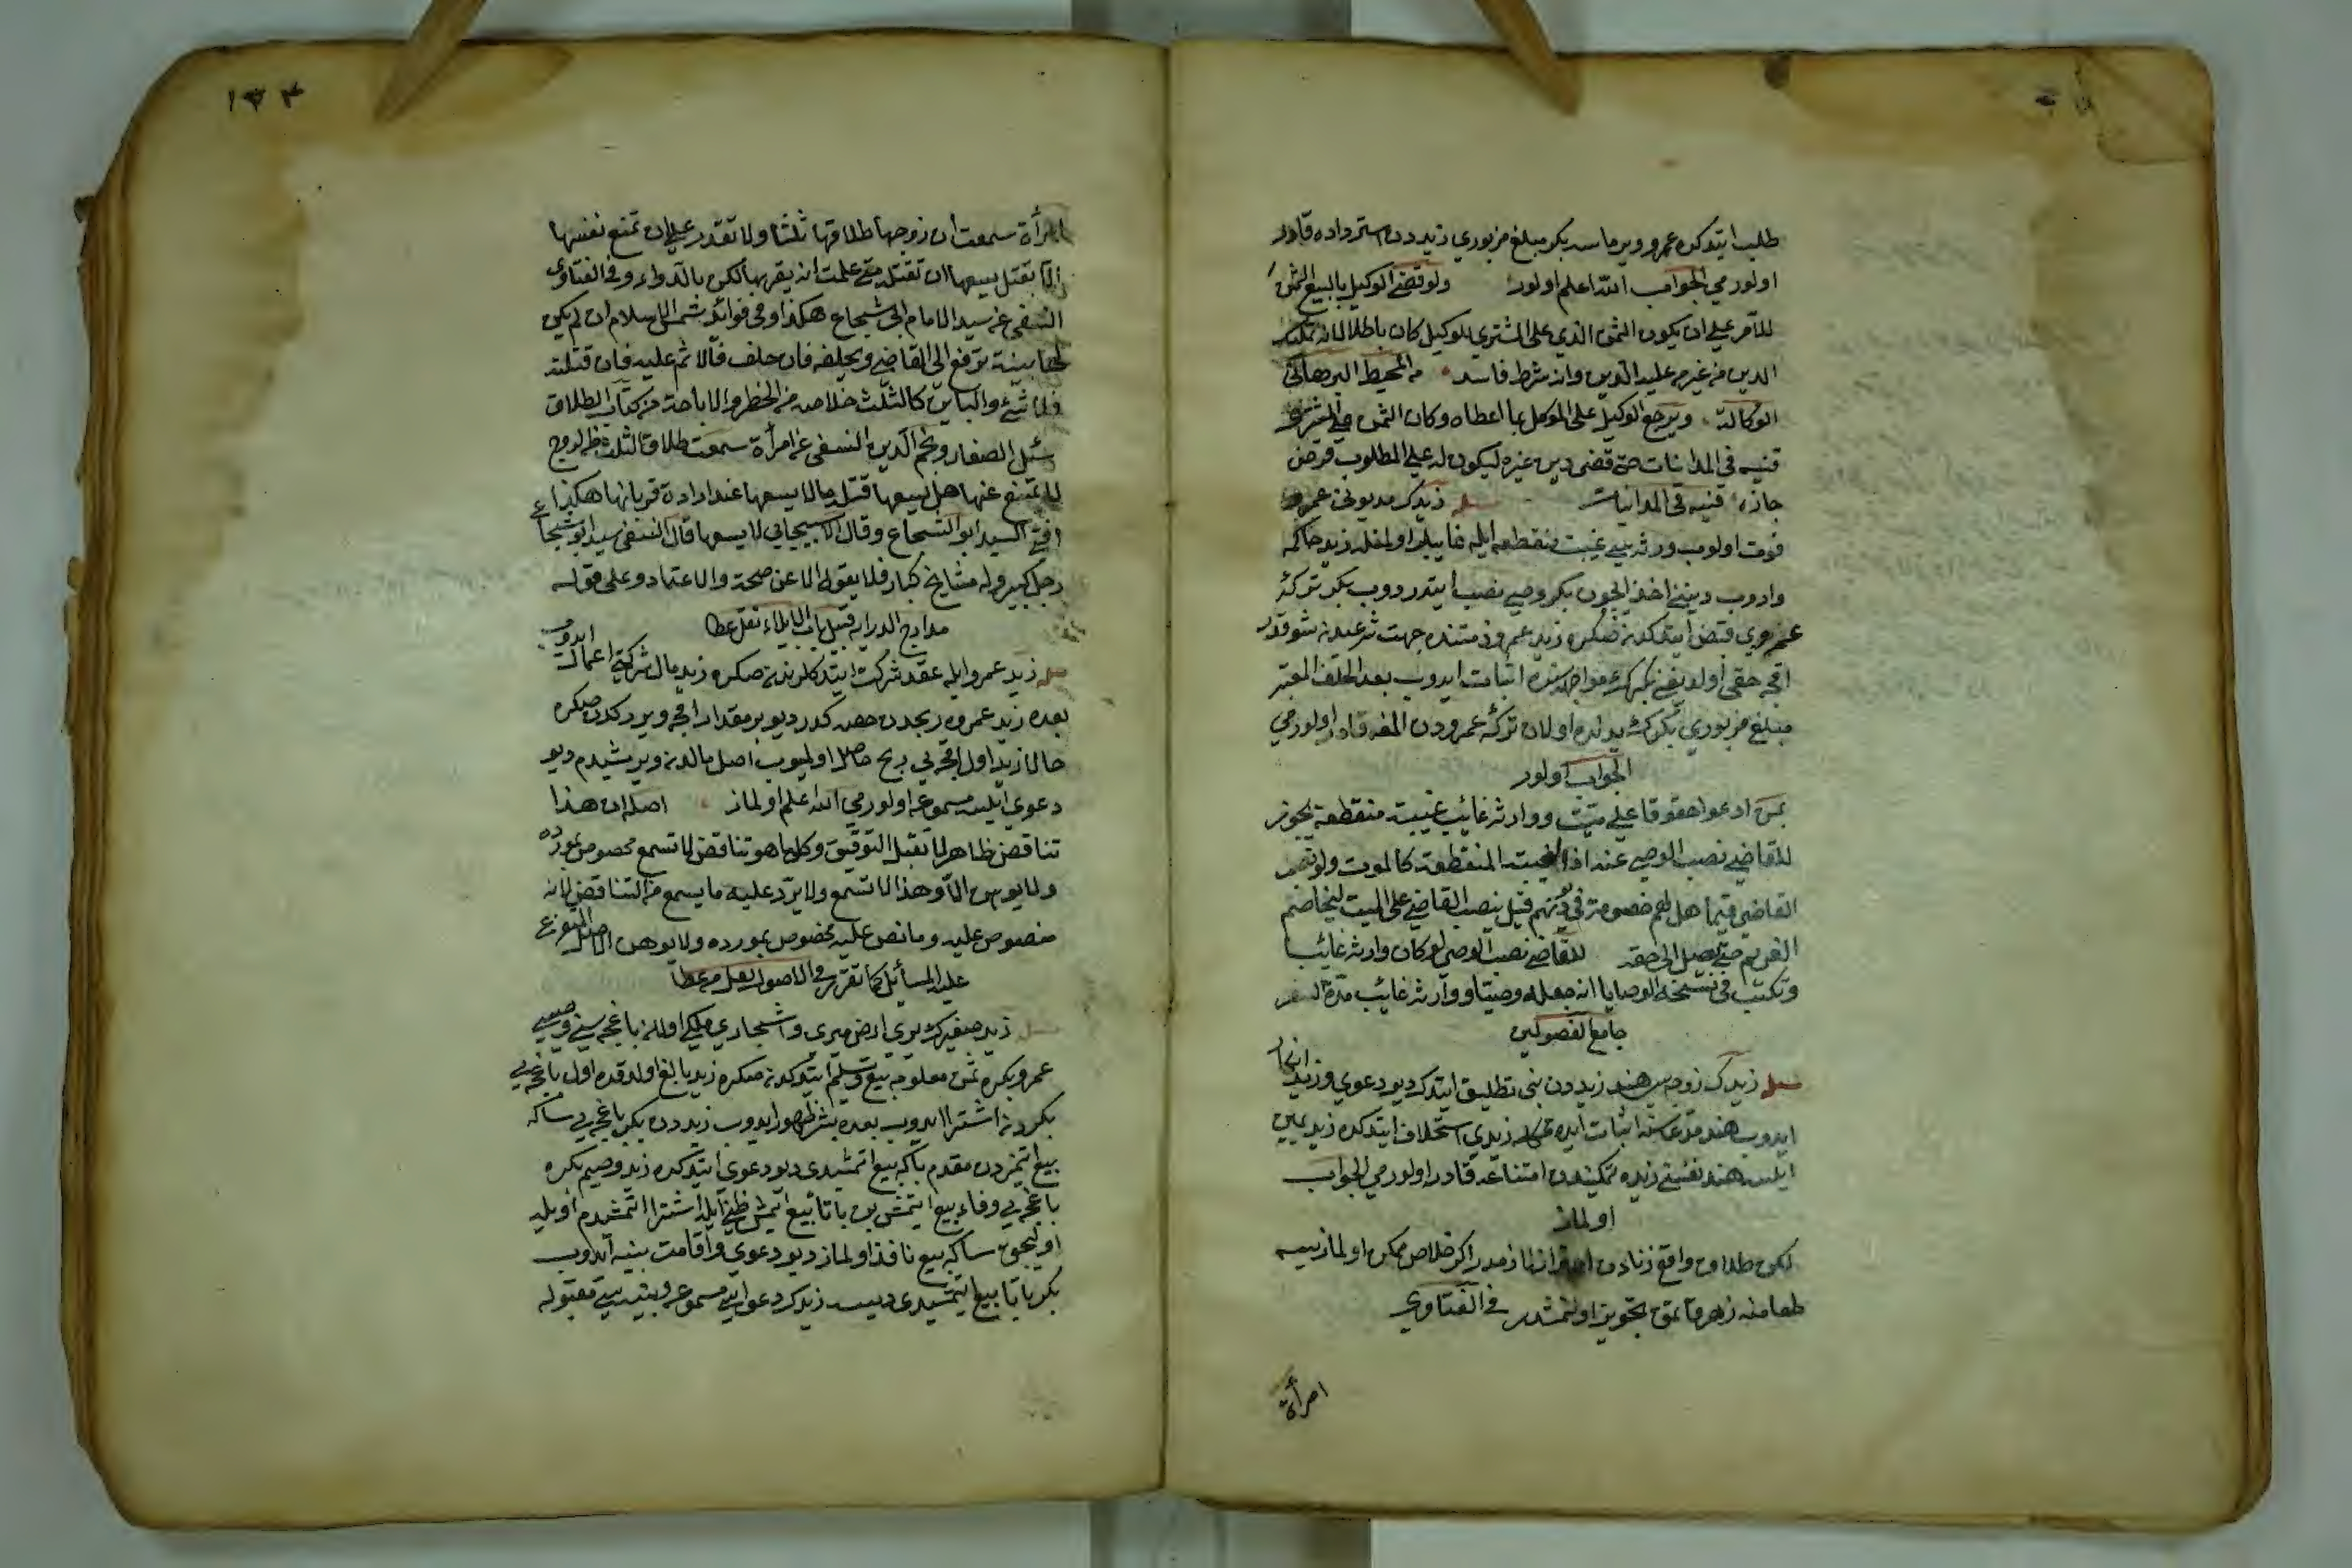 طلب ايتدكده عمرو ويرماسه بكر مبلغ مزبوري زيددن استرداده قادر
اولورمي الجواب الله اعلم اولور ولو قضى الوكيل بالبيع الثمن
للآمر على ان يكون الثمن الذي على المشتري للوكيل كان باطلا لانه تمليك
الدين من غير من عليه الدين وانه شرط فاسد من المحيط البرهاني
الوكالة ويرجع الوكيل على الموكل بما اعطاه وكان الثمن على المشتري
قنيه في المداينات حتى قضى دين غيره ليكون له على المطلوب فرض
جاز قنيه في المداينات زيدك مديوني عمرو
فوت اولوب ورثه سي غيبت منقطعه ايله غايبلر اولمغله زيد حاكمه
واروب دينني اخذ ايچون بكر وصي نصب ايتدروب بكر تركۀ
عمروي قبض ايتدكدنصكره زيد عمرو ذمتنده جهت شرعيه دن شو قدر
اقچه حقي اولديغني بكرك مواجهه سنده اثبات ايدوب بعد الحلف المعتبر
مبلغ مزبوري بكرك يدنده اولان تركۀ عمرودن المغه قادر اولورمي
الجواب اولور
بمن ادعوا حقوقا على ميت ووارثه غائب غيبة منقطعة يجوز
للقاضي نصب الوصي عنه اذ الغيبة المنقطعة كالموت ولو نصب
القاضي قيما هل لهم خصومة في دينهم قيل ينصب القاضي على الميت ليخاصم
الغريم حتى يصل الى حقه للقاضي نصب الوصي لو كان وارثه غائبا
وتكتب في نسخة الوصايا انه جعله وصيا ووارثه غائب مدة السفر
جامع الفصولين
زيدك زوجه سي هند زيددن بني تطليق ايتدك ديو دعوي وزيد انكار
ايدوب هند مدعاسنه اثبات ايده مماكله زيدي استحلاف ايتدكده زيد يمين
ايلسه هند نفسني زيده تمكيندن امتناعه قادر اولورمي الجواب
اولماز
لكن طلاق واقع زنادن احتراز لازمدر اكر خلاص ممكن اولماز ايسه
طعامنه زهر قاتمق تجويز اولنمشدر في الفتاوي
امرأة
١٣٤
امرأة سمعت ان زوجها طلاقها ثلثا ولا تقدر على ان تمنع نفسها
الا بقتل يسعها ان تقتله متى علمت انه يقربها لكن بالدواء وفي الفتاوى
النسفي عن سيد الامام ابي شجاع هكذا وفي فوائد شمس الاسلام ان لم يكن
لها بينة ترفع الى القاضي ويحلفه فان حلف فالاثم عليه فان قتلته
فلا شئ والباين كالثلث خلاصه من الحظر والاباحة من كتاب الطلاق
سئل الصفار ونجم الدين النسفي عن امرأة سمعت طلاق الثلث من الزوج
لا يمتنع عنها هل يسعها قتله مالا يسعها عند ارادة قربانها هكذا
افتى السيد ابو الشجاع وقال الاسبيجابي لا يسعها قال النسفي سيد ابو شجاع
رجل كبير وله مشايخ كبار فلا يقول الا عن صحة والاعتماد وعلى قوله
مدارج الدرايه قبيل باب الايلاء نقل عطا
زيد عمرو ايله عقد شركت ايتدكلرندنصكره زيد مال شركتي اعمال ايدوب
بعده زيد عمروه ربحدن حصه كدر ديو بر مقدار اقچه ويردكدنصكره
حالا زيد اول اقچه يي ربح حاصل اولميوب اصل مالدن ويرمشيدم ديو
دعوي ايلسه مسموعه اولورمي الله اعلم اولماز اصله ان هذا
تناقض ظاهر لا يقبل التوفيق وكل ما هو تناقض لا تسمع مخصوص بمورده
ولا يوهن الا وهذا لا تسمع ولا يرد عليه ما يسمع من التناقض لانه
منصوص عليه وما نص عليه مخصوص بمورده ولا يوهن الاصل المتفرع
عليه المسائل كما تقرر في الاصول نقل من عطا
زيد صغيرك يري ارض ميري واشجاري ملكي اولان باغچه سني وصيسي
عمرو بكره ثمن معلومه بيع وتسليم ايتدكدنصكره زيد بالغ اولدقده اول باغچه يي
بكردن اشترا ايدوب بعده بشر ظهور ايدوب زيددن بكر باغچه يي سكا
بيع ايتمزدن مقدم بكا بيع ايتمشيدي ديو دعوي ايتدكده زيد وصيم بكره
باغچه يي وفاء بيع ايتمش بن باتا بيع ايتمش ظني ايله اشترا ايتمشيدم اويله
اوليجق سكا بيع نافذ اولماز ديو دعوي واقامت بينه ايدوب
بكر باتا بيع ايتمشيدي ديسه زيدك دعواسي مسموعه وبينه سي مقبوله